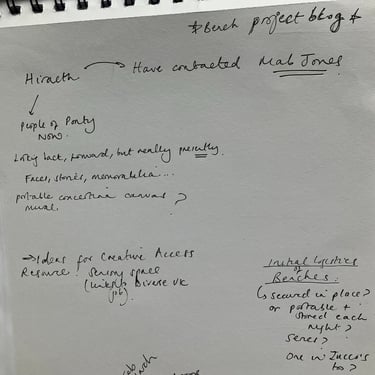 *Bench project blog*
Hiraeth → Have contacted Mab Jones
People of Ponty
NOW.
Looking back, forward, but really presently.
Faces, stories, memorabilia...
portable concertina canvas
mural ?
→ Ideas for Creative Access
Resource! Sensory space
(links Diverse UK
job).
Initial Logistics
of
Benches:
↳ secured in place?
or portable +
stored each
night?
Series?
One in Zucco's
to?